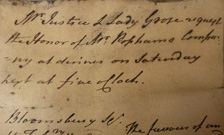 Mr. Justice & Lady Goose request
the Honor of Mr. Pophams Compa=
=ny at dinner on Saturday
next at five o'Clock.
Bloomsbury Sq.
The favour of an